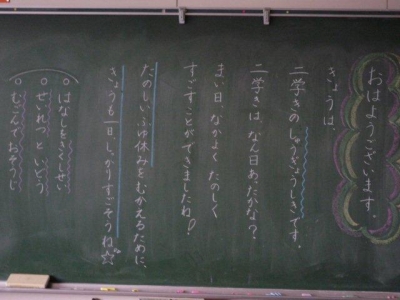 おはようございます。
きょうは、
二学きのしゅうぎょうしきです。
二学きは、なん日あったかな？
まい日、なかよく たのしく
すごすことができましたね!
たのしいふゆ休みをむかえるために、
きょうも一日しっかりすごそうね☆
○はなしをきくしせい
○せいれつ といどう
○むごんでおそうじ